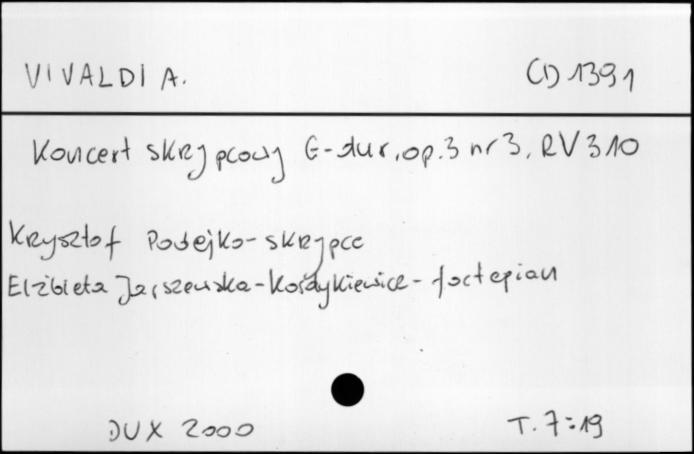 VIVALDI A. CD 1391
Koncert skrzypcowy G-dur, op.3 nr 3, RV 310
Krzysztof Podejko - skrzypce
Elżbieta - fortepian
DUX 2000 T. 7:19